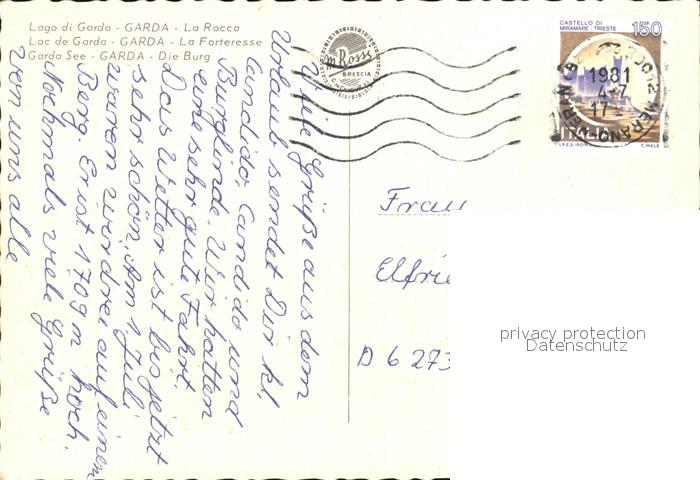 Lago di Garda - GARDA - La Rocca
Lac de Garda - GARDA - La Forteresse
Garda See - GARDA - Die Burg
Rossi
BRESCIA
CASTELLO DI
MIRAMARE - TRIESTE
150
1981
4-7
17
MERANO
MERAN
ITALIA
I.P.Z.S.-ROMA
T. MELE
Viele Grüße aus dem
Urlaub sendet Dir kl.
Candida, Candido und
Burglinde. Wir hatten
eine sehr gute Fahrt.
Das Wetter ist bis jetzt
sehr schön. Am 1 Juli
waren wir drei auf einem
Berg. Er ist 1709 m hoch.
Nochmals viele Grüße
von uns alle
Frau
Elfrie
D 6 273
privacy protection
Datenschutz